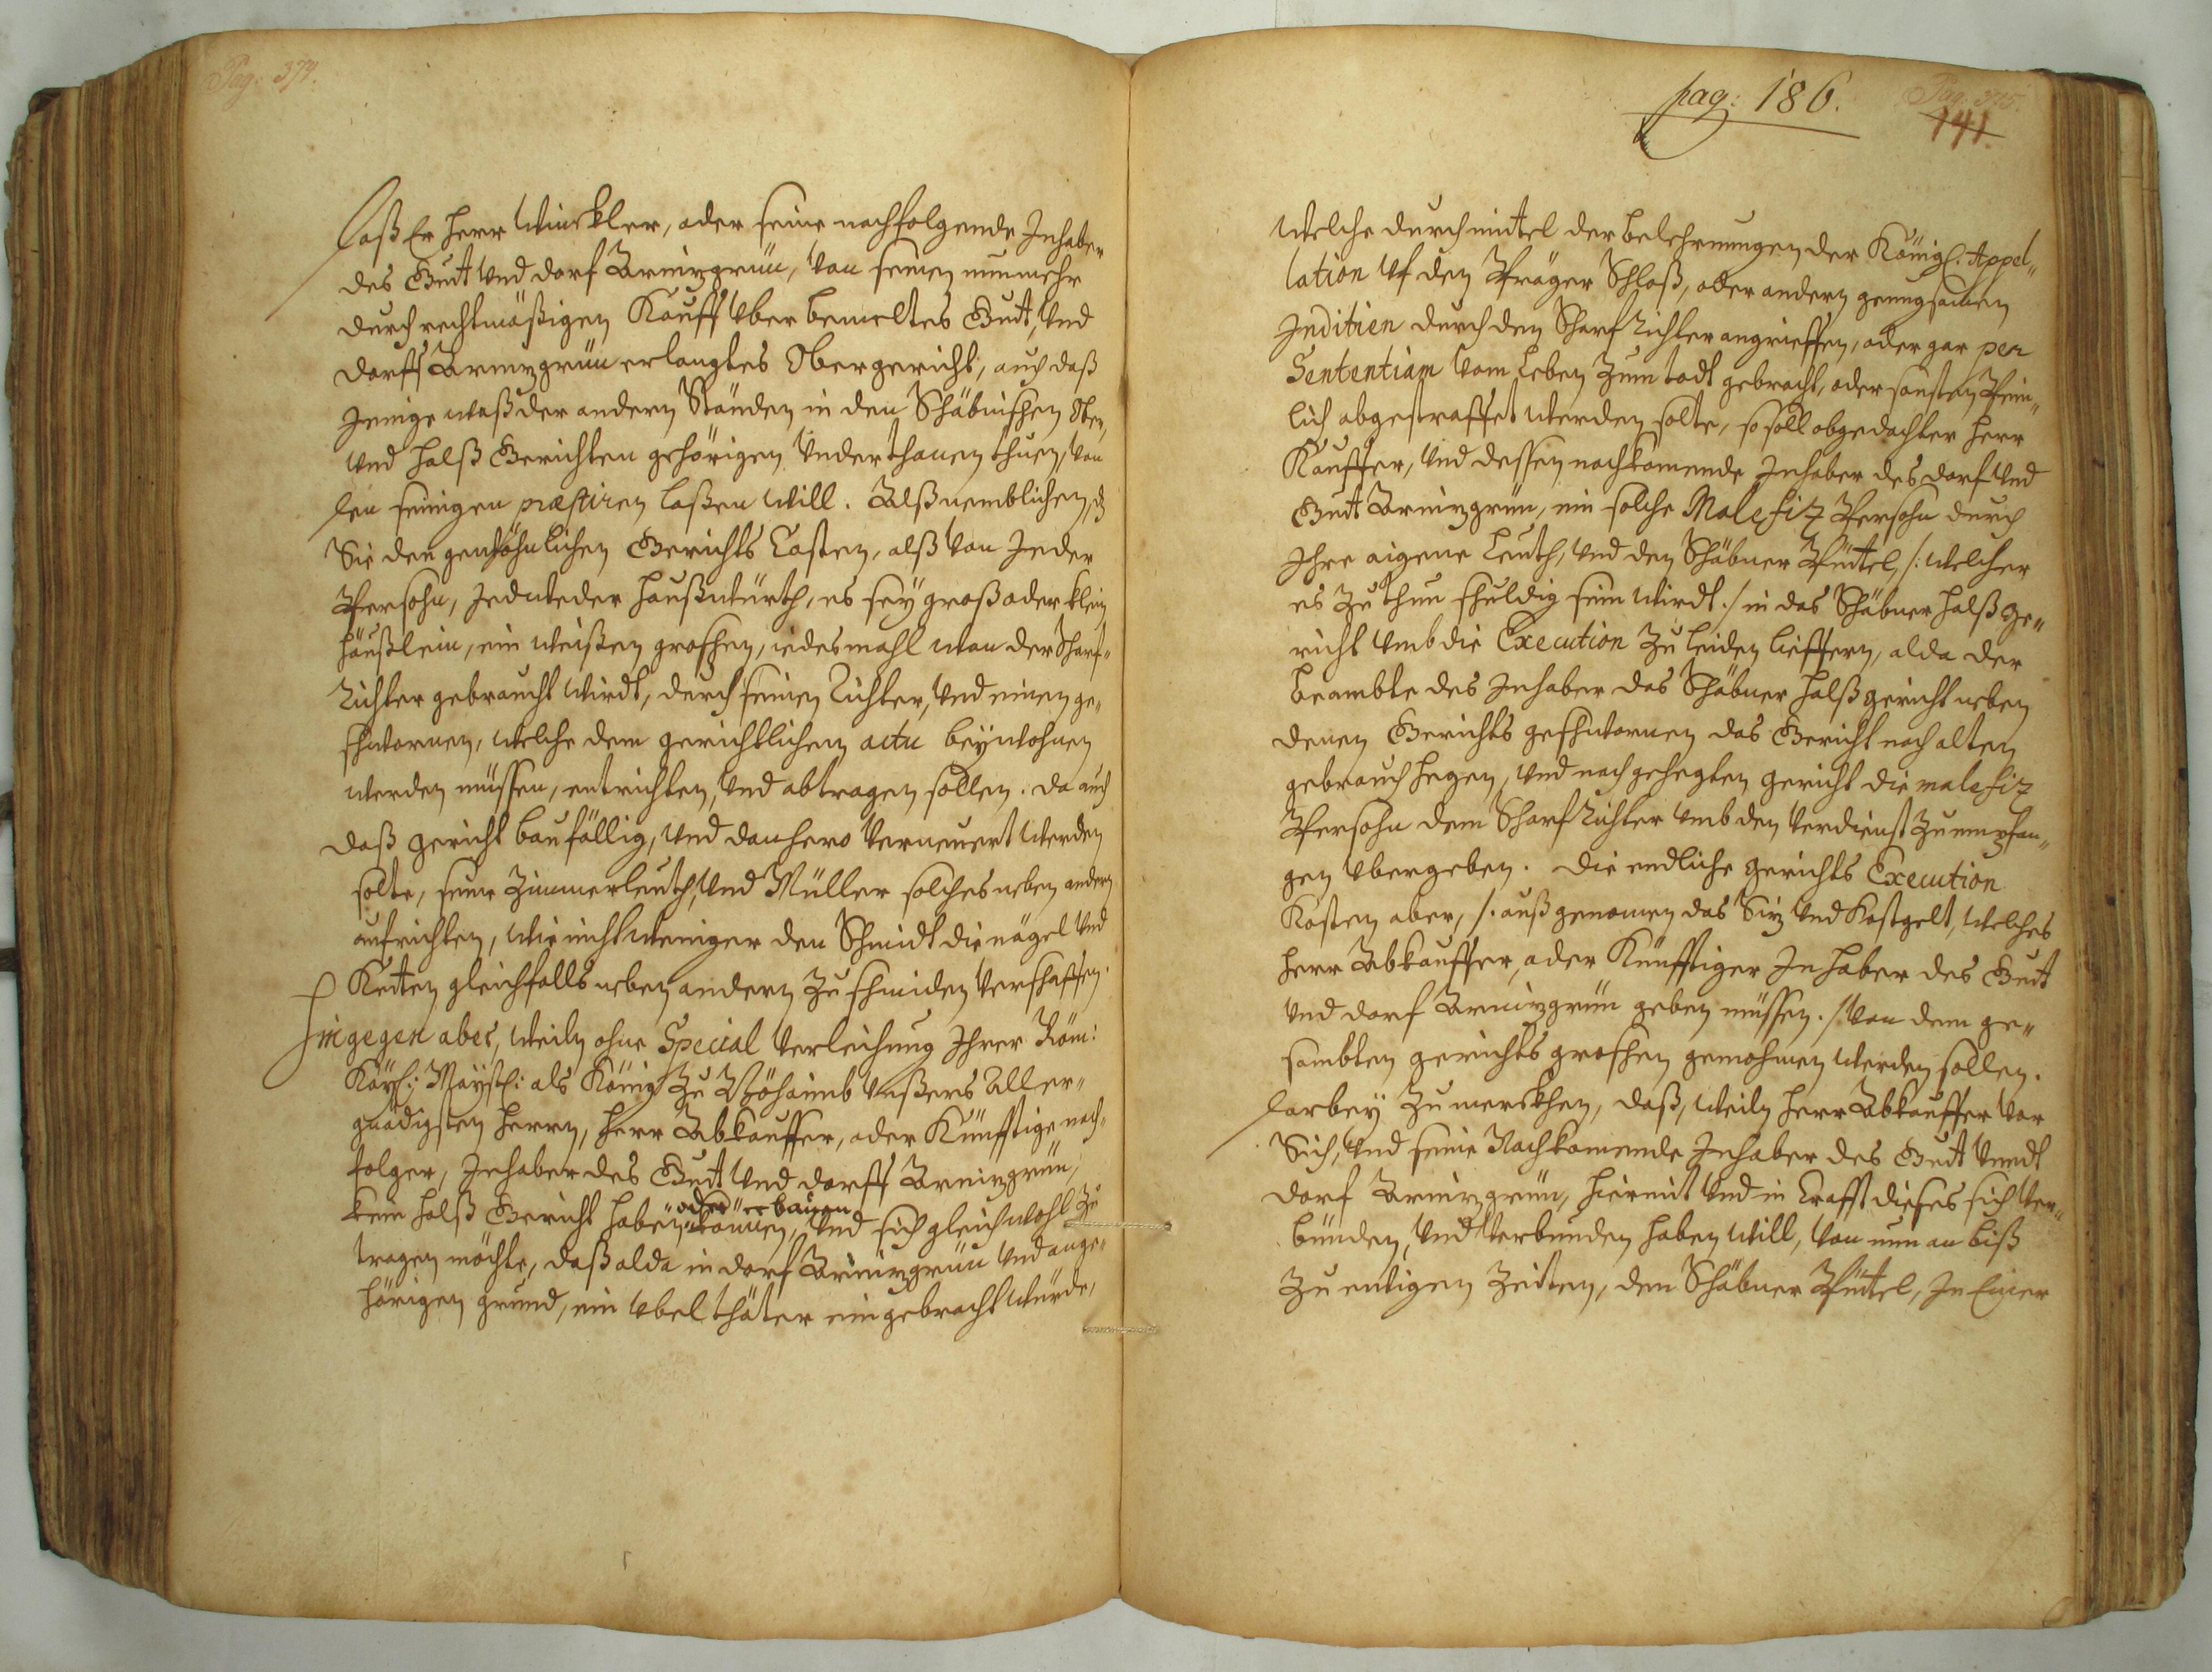 Pag: 374.
Daß Er Herr Winckler, oder seine nachfolgende Inhaber
des Gutt Und dorf Arnizgrün, Von seinen nunmehr
durch rechtmäßigen Kauff Uber bemeltes Gutt, Und
dorff Arnizgrün erlangtes Obergericht, auch daß
Jenige waß der andern Ständen in den Schäbnischen Ober„
Und Halß Gerichten gehörigen Underthanen thuen, Von
den seinigen præstiren laßen will. Alß nemblichen, dz
Sie den gewöhnlichen Gerichts Costen, alß Von Jeder
Persohn, Jedweder Haußwürth, es seÿ groß oder klein
häußlein, ein weißen groschen, iedesmahl wan der Scharf„
Richter gebraucht wirdt, durch seinen Richter, Und einen ge„
schwornen, welche dem gerichtlichen actu beÿwohnen
werden müssen, entrichten, Und abtragen sollen. Da auch
daß gericht baufällig, Und danhero Verneuert werden
solte, seine Zimmerleuth, Und Müller solches neben andern
aufrichten, wie nicht weniger den Schmidt die nägel Und
Ketten gleichfalls neben andern Zu schmiden Verschaffen.
Hingegen aber, weiln ohne Special Verleihung Ihrer Röm:
Kaÿ: Maÿst: als König Zu Böhaimb Unßers Aller„
gnädigsten Herrn, Herr Abkauffer, oder Künfftige nach„
folger, Inhaber des Gutt Und dorff Arnizgrün,
oder erbauen
kein Halß Gericht haben, können, Und sich gleichwohl Zu
tragen möchte, daß alda in dorf Arnizgrün Und ange„
hörigen grund, ein Ubelthäter eingebracht würde,
pag: 186.
Pag. 375.
141.
Welche durch mittel der belehrnungen der Königl. Appel„
lation Uf den Prager Schloß, oder andern genugsamen
Inditien durch den Scharf Richter angrieffen, oder gar per
Sententiam Vom Leben Zum todt gebracht, oder sonsten Pein„
lich abgestraffet werden solte, so soll obgedachter Herr
Kauffer, Und dessen nachkomende Inhaber des dorf Und
Gutt Arnizgrün, ein solche Malefitz Persohn durch
Ihre aigene Leuth, Und den Schäbner Püttel, /: welcher
es Zu thun schuldig sein wirdt :/ in das Schäbner Halß Ge„
richt Umb die Execution Zu leiden lieffern, alda der
beambte des Inhaber das Schäbner Halßgericht neben
denen Gerichts geschwornen das Gericht nach alten
gebrauch hegen, Und nach gehegten gericht die malefiz
Persohn dem Scharf Richter Umb den Verdienst Zu empfan„
gen Ubergeben. Die endliche gerichts Execution
Kosten aber, /: auß genomen das Siz Und Kostgelt, welches
Herr Abkauffer, oder Künfftiger Inhaber des Gutt
Und dorf Arnizgrün geben müssen :/ Von dem ge„
sambten gerichts groschen genohmen werden sollen.
Darbeÿ Zu merckhen, daß, weiln Herr Abkauffer Vor
Sich, Und seine Nachkomende Inhaber des Gutt Unndt
dorf Arnizgrün, hiermit Und in Crafft dieses sich Ver„
bünden, Und Verbunden haben will, Von nun an biß
Zu ewigen Zeiten, dem Schäbner Püttel, In Einer